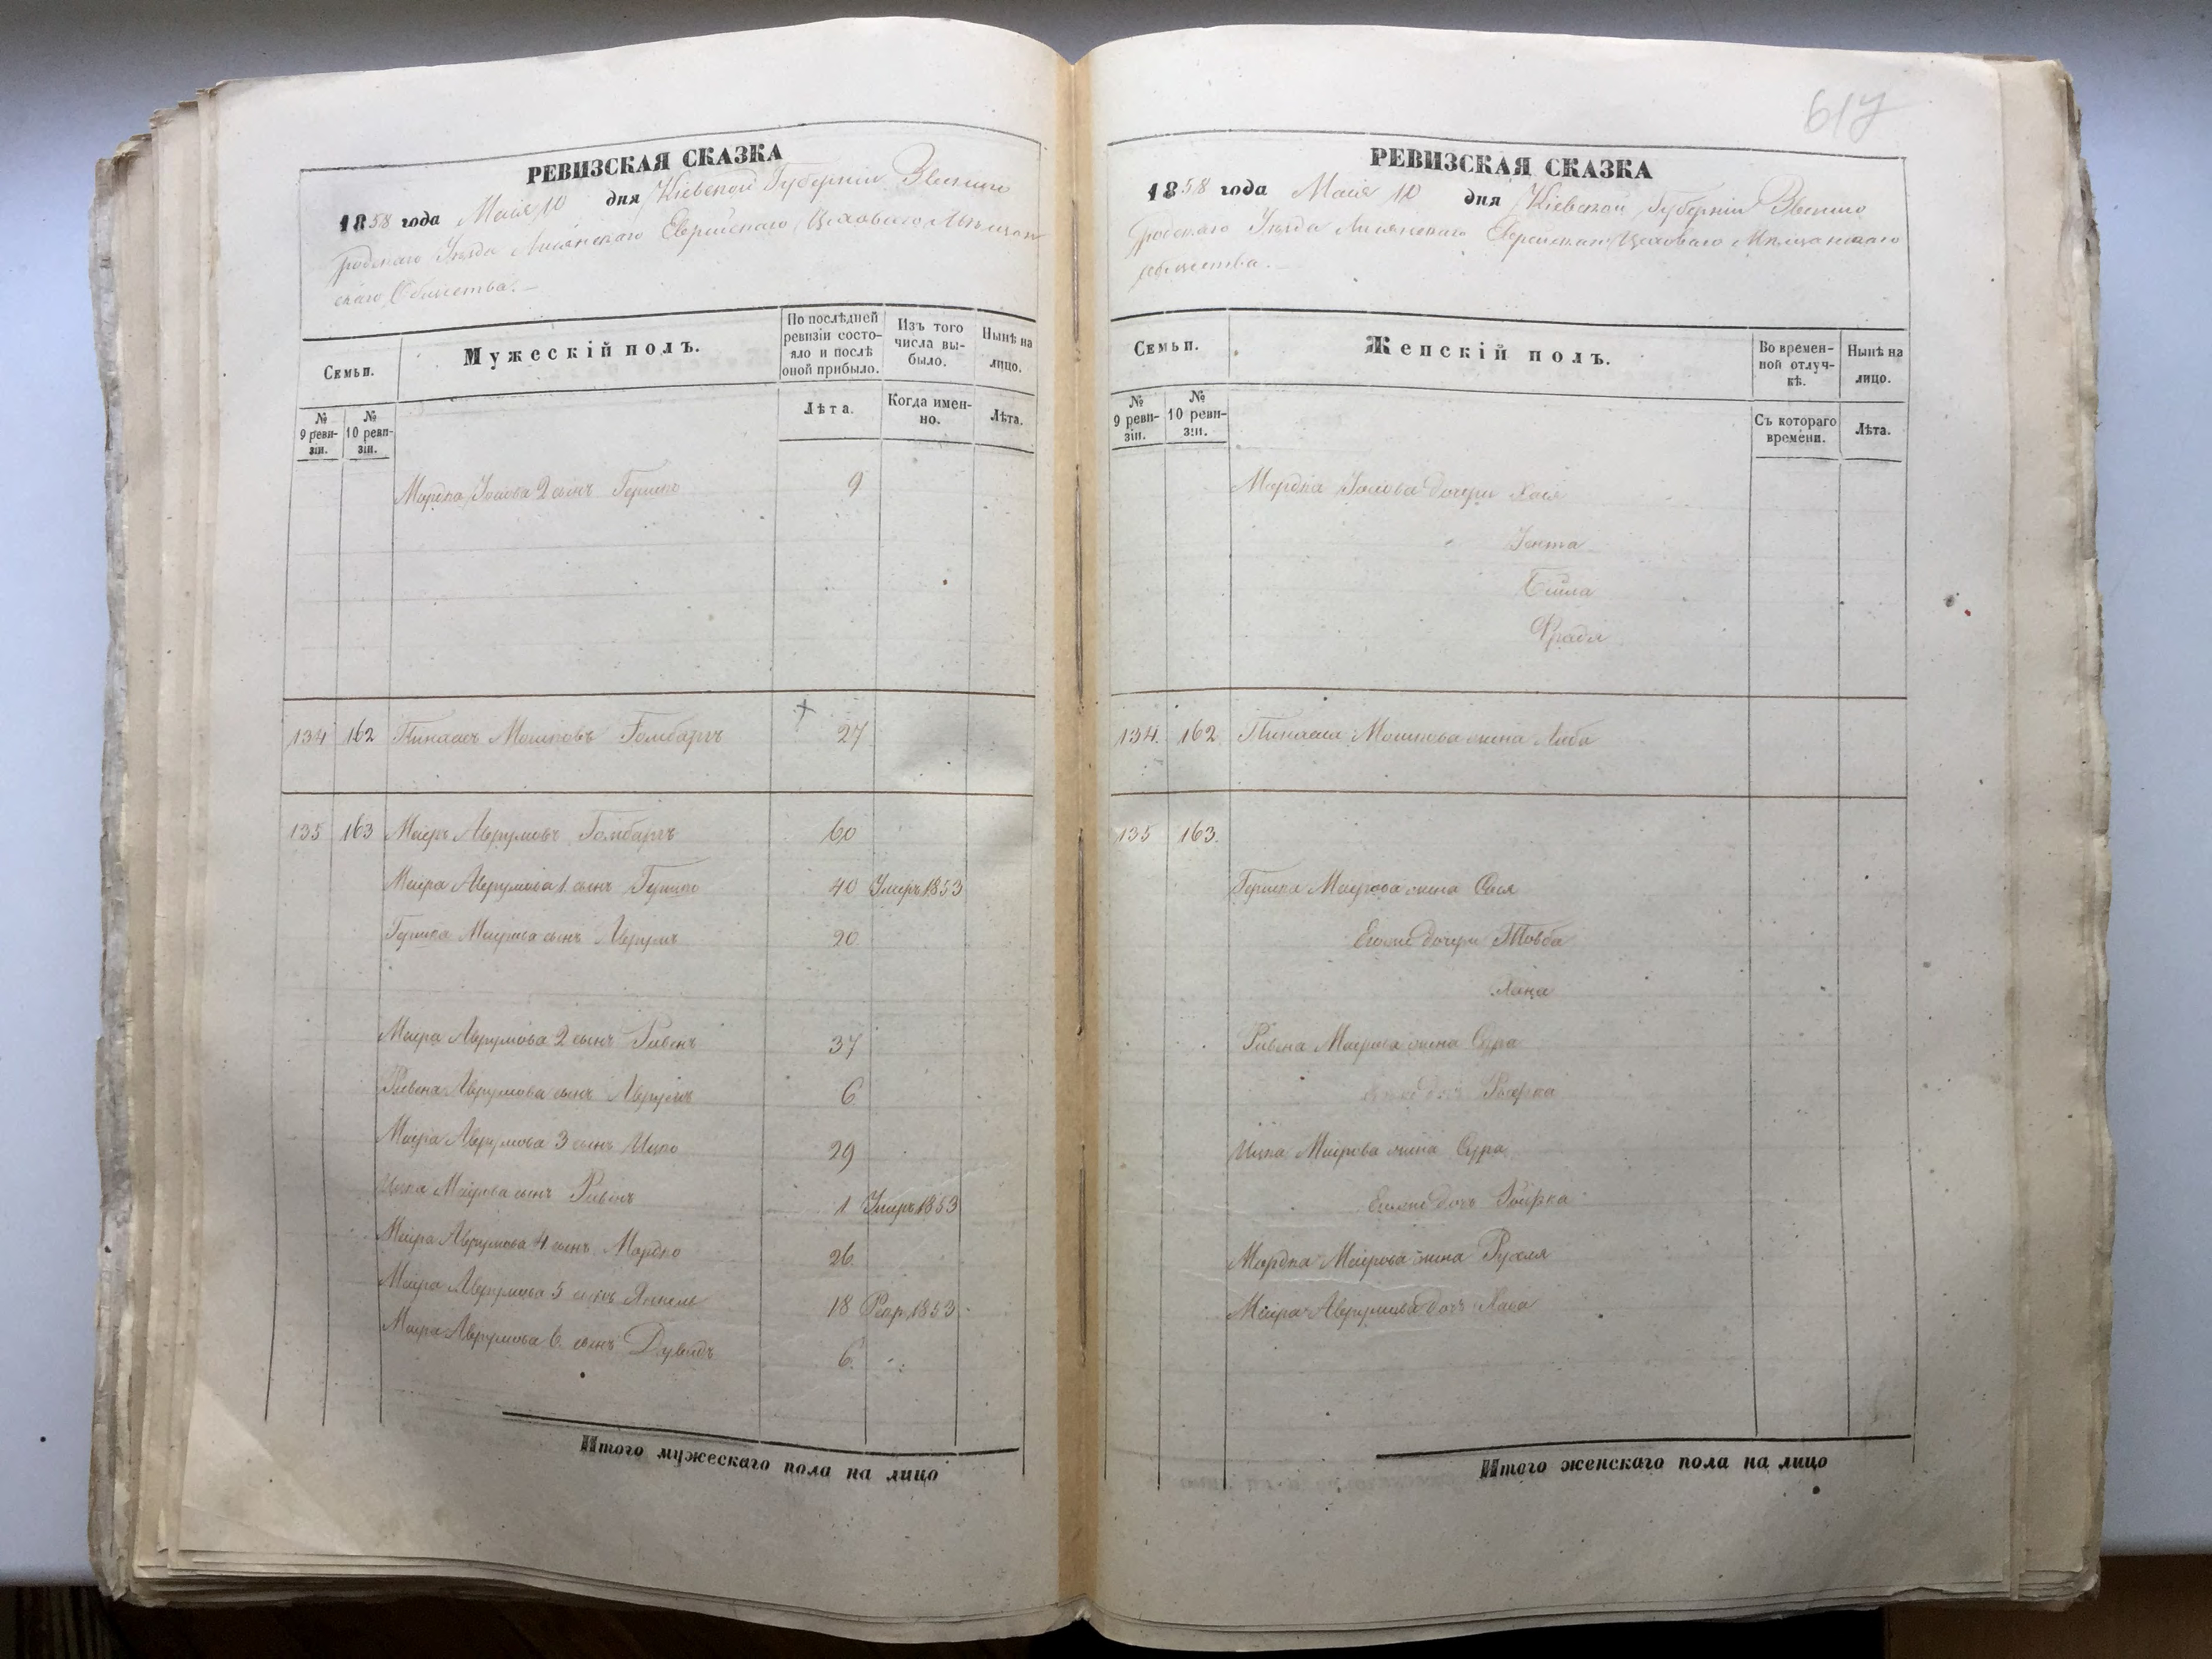 РЕВИЗСКАЯ СКАЗКА
1858 года Маія 10 дня Кіевской Губерніи Звенино
родскаго Уѣзда Лисянскаго Еврейскаго Цеховаго Мѣщан
скаго Общества.
Семьи.
Мужескій полъ.
По послѣдней ревизіи состояло и послѣ оной прибыло.
Изъ того числа выбыло.
Нынѣ на лицо.
№ 9 ревизіи.
№ 10 ревизіи.
Лѣта.
Когда именно.
Лѣта.
Мордка Іосіова 2 сынъ Гершко 9
134 162 Пинхасъ Мошковъ Гомбаргъ 27
135 163 Меиръ Аврумовъ Гомбаргъ 60
Меира Аврумова 1 сынъ Гершко 40 Умеръ 1853
Гершка Меирова сынъ Аврумъ 20
Меира Аврумова 2 сынъ Рувенъ 37
Рувена Аврумова сынъ Аврумъ 6
Меира Аврумова 3 сынъ Ицко 29
Ицка Меирова сынъ Рувенъ 1 Умеръ 1853
Меира Аврумова 4 сынъ Мордко 26
Меира Аврумова 5 сынъ Янкель 18 Рекр. 1853
Меира Аврумова 6 сынъ Дувидъ 6
Итого мужескаго пола на лицо
617
РЕВИЗСКАЯ СКАЗКА
1858 года Маія 10 дня Кіевской Губерніи Звенино
родскаго Уѣзда Лисянскаго Еврейскаго Цеховаго Мѣщанскаго
общества.
Семьи.
Женскій полъ.
Во временной отлучкѣ.
Нынѣ на лицо.
№ 9 ревизіи.
№ 10 ревизіи.
Съ котораго времени.
Лѣта.
Мордка Іосіова дочери Хася
Іента
Бейла
Фрадя
134. 162 Пинхаса Мошкова жена Либа
135 163.
Гершка Меирова жена Сися
Егоже дочери Товба
Хана
Рувена Меирова жена Сура
Егоже дочь
Ицка Меирова жена Сура
Егоже дочь
Мордка Меирова жена Рухля
Меира Аврумова дочь Хава
Итого женскаго пола на лицо